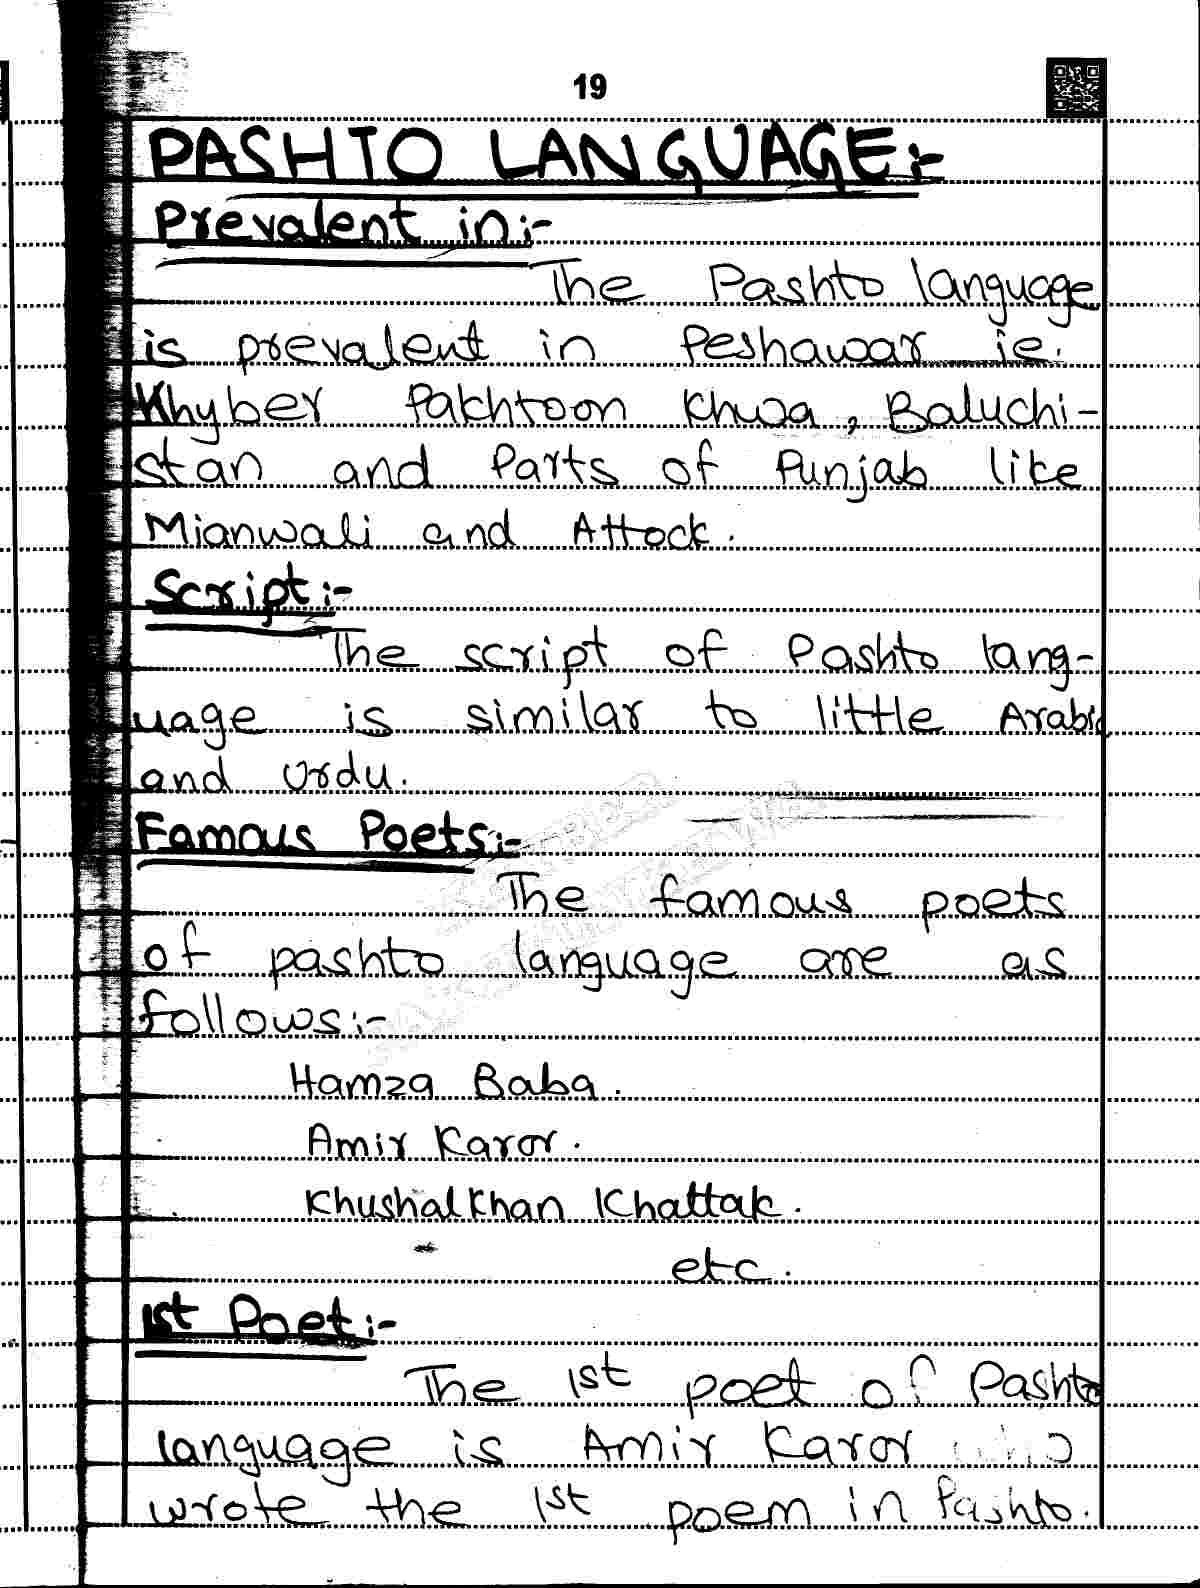 19
PASHTO LANGUAGE:-
Prevalent in:-
The Pashto language
is prevalent in Peshawar ie.
Khyber Pakhtoon Khwa, Baluchi-
stan and Parts of Punjab like
Mianwali and Attock.
Script:-
The script of Pashto lang-
uage is similar to little Arabic
and Urdu.
Famous Poets:-
The famous poets
of pashto language are as
follows:-
Hamza Baba.
Amir Karor.
Khushal Khan Khattak.
etc.
1st Poet:-
The 1st poet of Pashto
language is Amir Karor who
wrote the 1st poem in Pashto.